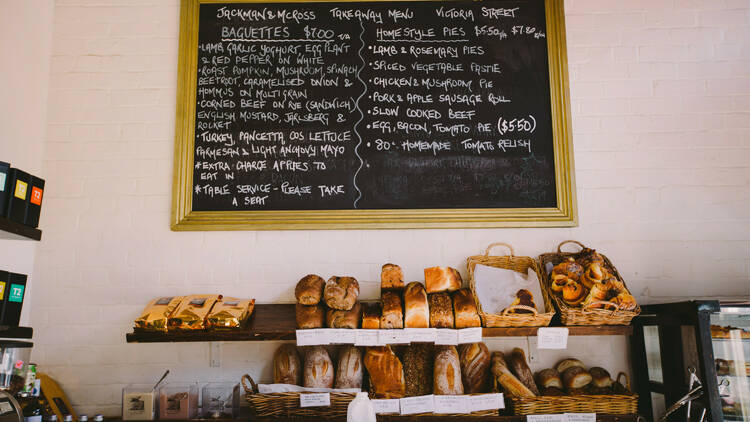 JACKMAN & MCROSS TAKEAWAY MENU VICTORIA STREET
BAGUETTES $7.00 T/A
• LAMB GARLIC YOGHURT EGG PLANT
& RED PEPPER ON WHITE
• ROAST PUMPKIN, MUSHROOM, SPINACH
BEETROOT, CARAMELISED ONION &
HOMMUS ON MULTIGRAIN
• CORNED BEEF ON RYE (SANDWICH)
ENGLISH MUSTARD, JARLSBERG &
ROCKET
• TURKEY, PANCETTA, COS LETTUCE
PARMESAN & LIGHT ANCHOVY MAYO
* EXTRA CHARGE APPLYES TO
EAT IN
* TABLE SERVICE - PLEASE TAKE
A SEAT
HOMESTYLE PIES $5.50 T/A $7.80
• LAMB & ROSEMARY PIES
• SPICED VEGETABLE PASTIE
• CHICKEN & MUSHROOM PIE
• PORK & APPLE SAUSAGE ROLL
• SLOW COOKED BEEF
• EGG, BACON, TOMATO PIE ($5.50)
• 80¢ HOMEMADE TOMATO RELISH
T2
T2